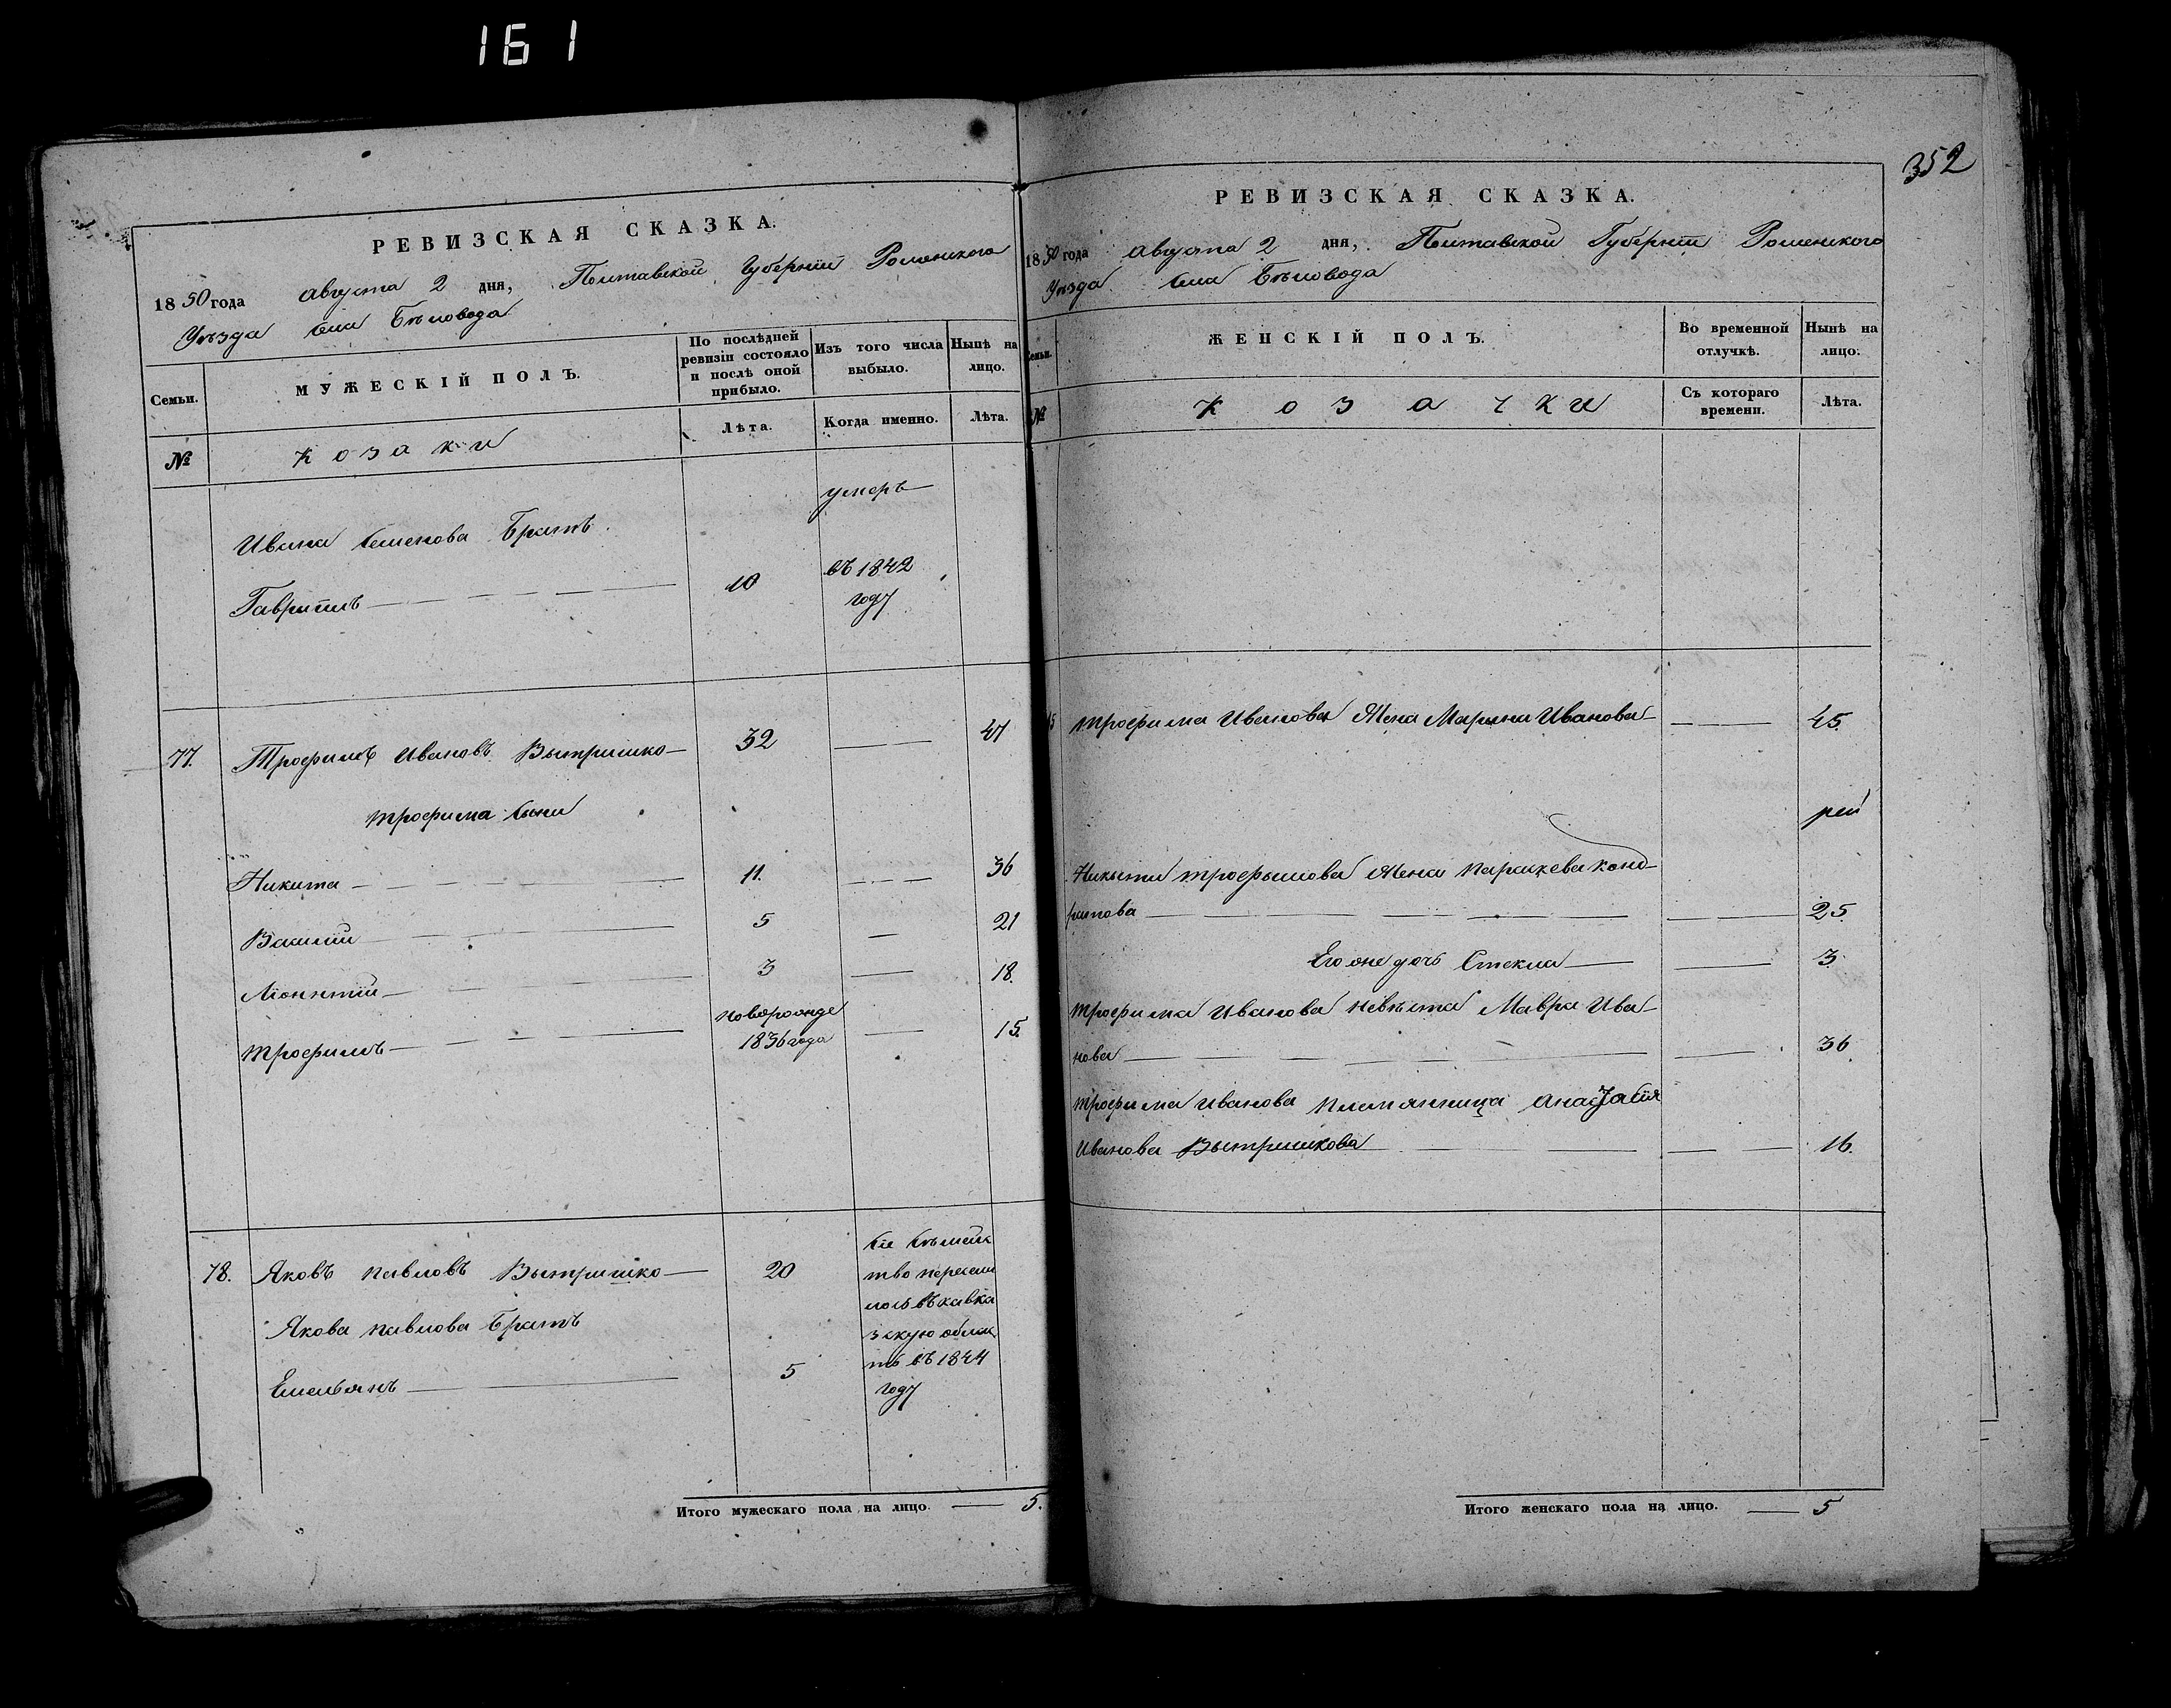 161
РЕВИЗСКАЯ СКАЗКА.
1850 года Августа 2 дня, Полтавской Губерніи Роменского
Уѣзда Села Бѣловода
Семьи.
МУЖЕСКІЙ ПОЛЪ.
По послѣдней ревизіи состояло и послѣ оной прибыло.
Изъ того числа выбыло.
Нынѣ на лицо.
№
Козаки
Лѣта.
Когда именно.
Лѣта.
умеръ
Ивана Семенова Братъ
Гавриилъ 10 въ 1842
году
77. Трофимъ Ивановъ Вытришко 32 47
Трофима Сыни
Никита 11. 36
Василій 5 21
Ліонтій 3 18.
новорожде
Трофимъ 1836 года 15.
78. Яковъ Павловъ Вытришко 20
Якова Павлова Братъ
Емельянъ 5
Сіе Семейс
тво пересли
лось въ Кавка
зскую облас
ть въ 1844
году
Итого мужескаго пола на лицо. 5.
352
РЕВИЗСКАЯ СКАЗКА.
1850 года Августа 2 дня, Полтавской Губерніи Роменского
Уѣзда Села Бѣловода
Семьи.
ЖЕНСКІЙ ПОЛЪ.
Во временной отлучкѣ.
Нынѣ на лицо.
№
Козачки
Съ котораго времени.
Лѣта.
Трофима Иванова Жена Марина Иванова 45.
Никыти Трофымова Жена Параскева Конд-
ратова 25.
Его оне дочь Стекла 3.
Трофима Иванова невѣста Мавра Ива-
нова 36.
Трофима Иванова племянница Анастасія
Иванова Вытришкова 16.
Итого женскаго пола на лицо. 5